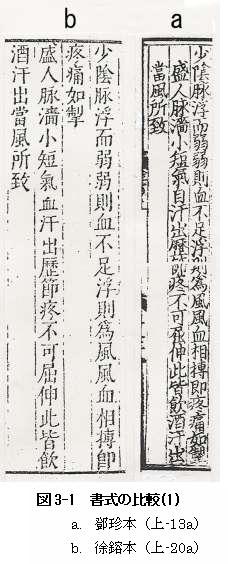 a
少陰脉浮而弱弱則血不足浮則為風風血相搏即疼痛如掣
盛人脉濇小短氣自汗出歷節疼不可屈伸此皆飲酒汗出
當風所致
b
少陰脉浮而弱弱則血不足浮則為風風血相搏即
疼痛如掣
盛人脉濇小短氣血汗出歷節疼不可屈伸此皆飲
酒汗出當風所致
図3-1 書式の比較(1)
a. 鄧珍本（上-13a）
b. 徐鎔本（上-20a）